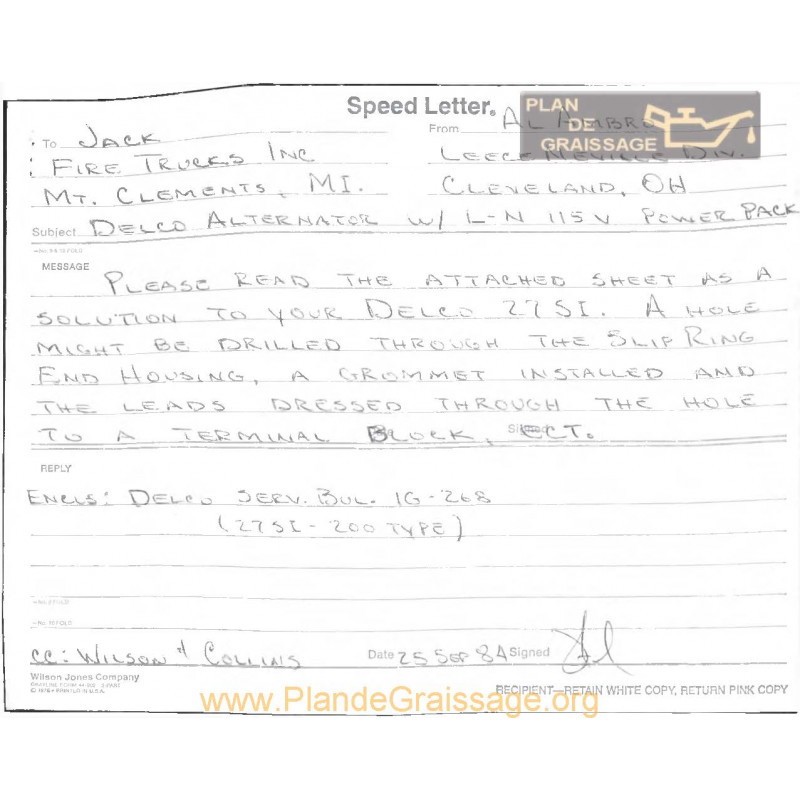 Speed Letter®
PLAN DE GRAISSAGE
To Jack From Al
Fire Trucks Inc Leece Neville Div.
Mt. Clements, MI. Cleveland, OH
Subject Delco Alternator w/ L-N 115V Power Pack
MESSAGE
Please read the attached sheet as a
solution to your Delco 27SI. A hole
might be drilled through the Slip Ring
End Housing, a grommet installed and
the leads dressed through the hole
to a terminal block, ect. Signed
REPLY
Encls: Delco Serv. Bul. 1G-268
(27SI-200 type)
—No. 10 FOLD
cc: Wilson & Collins Date 25 Sep 84 Signed
Wilson Jones Company
PRINTED IN U.S.A.
www.PlandeGraissage.org
RECIPIENT—RETAIN WHITE COPY, RETURN PINK COPY